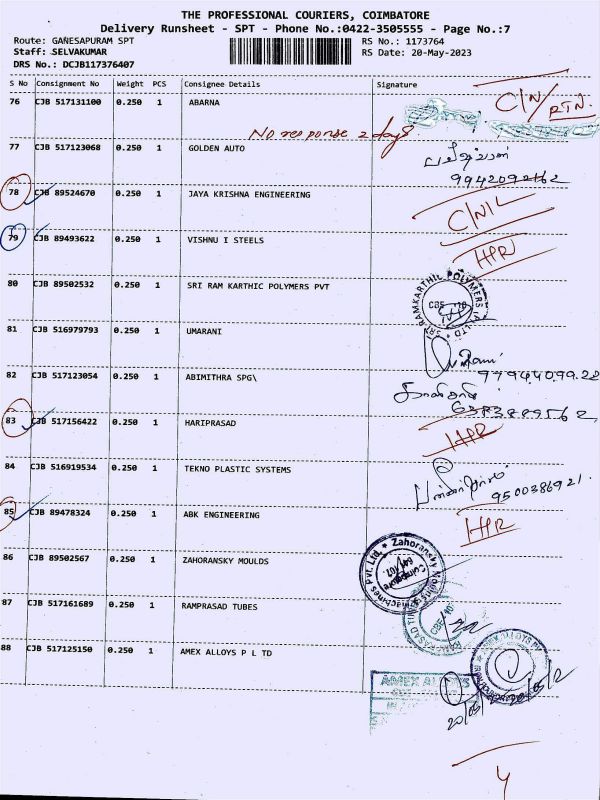 THE PROFESSIONAL COURIERS, COIMBATORE
Delivery Runsheet - SPT - Phone No.:0422-3505555 - Page No.:7
Route: GANESAPURAM SPT RS No.: 1173764
Staff: SELVAKUMAR RS Date: 20-May-2023
DRS No.: DCJB117376407
S No Consignment No Weight PCS Consignee Details Signature
76 CJB 517131100 0.250 1 ABARNA C/N/RTN.
No response 2 days
77 CJB 517123068 0.250 1 GOLDEN AUTO
9942092162
78 CJB 89524670 0.250 1 JAYA KRISHNA ENGINEERING
C/N/L
79 CJB 89493622 0.250 1 VISHNU I STEELS HPR
80 CJB 89502532 0.250 1 SRI RAM KARTHIC POLYMERS PVT
81 CJB 516979793 0.250 1 UMARANI
82 CJB 517123054 0.250 1 ABIMITHRA SPG\
83 CJB 517156422 0.250 1 HARIPRASAD HPR
84 CJB 516919534 0.250 1 TEKNO PLASTIC SYSTEMS
9500386921
85 CJB 89478324 0.250 1 ABK ENGINEERING HPR
86 CJB 89502567 0.250 1 ZAHORANSKY MOULDS
87 CJB 517161689 0.250 1 RAMPRASAD TUBES
88 CJB 517125150 0.250 1 AMEX ALLOYS P L TD
AMEX ALLOYS
4